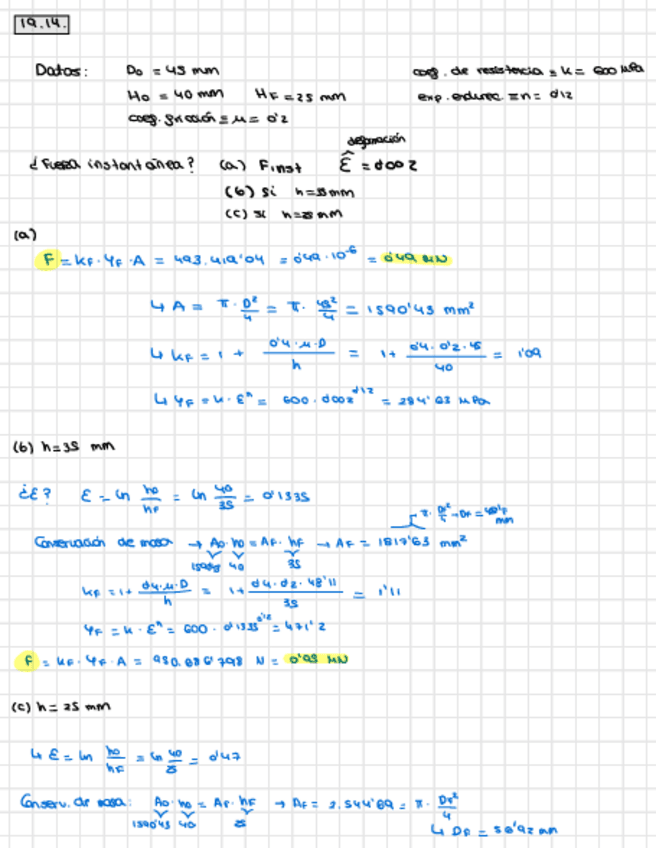 19.14.
Datos: D0 = 45 mm coef. de resistencia = K = 600 MPa
H0 = 40 mm HF = 25 mm exp. endurec. = n = 0'12
coef. fricción = μ = 0'2
deformación
¿Fuerza instantánea? (a) Finst ε = 0'002
(b) si h=35mm
(c) si h=25mm
(a)
F = KF · YF · A = 493.419'04 = 0'49 · 10⁻⁶ = 0'49 MN
↳ A = π · D²/4 = π · 45²/4 = 1590'43 mm²
↳ KF = 1 + 0'4·μ·D/h = 1 + 0'4·0'2·45/40 = 1'09
↳ YF = K · εⁿ = 600 · 0'002^0'12 = 284'63 MPa
(b) h=35 mm
¿ε? ε = ln h0/hF = ln 40/35 = 0'1335
π · DF²/4 → DF = 48'1 mm
Conservación de masa → A0·h0 = AF·hF → AF = 1817'63 mm²
40 35
KF = 1 + 0'4·μ·D/h = 1 + 0'4·0'2·48'11/35 = 1'11
YF = K · εⁿ = 600 · 0'1335^0'12 = 471'2
F = KF · YF · A = 950.686'798 N = 0'95 MN
(c) h = 25 mm
↳ ε = ln h0/hF = ln 40/25 = 0'47
Conserv. de masa: A0·h0 = AF·hF → AF = 2.544'69 = π · DF²/4
1590'43 40 25 ↳ DF = 56'92 mm